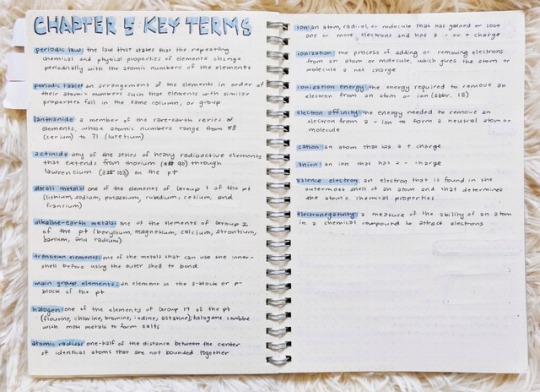 CHAPTER 5 KEY TERMS
periodic law: the law that states that the repeating
chemical and physical properties of elements change
periodically with the atomic numbers of the elements
periodic table: an arrangement of the elements in order of
their atomic numbers such that elements with similar
properties fall in the same column, or group
lanthanide: a member of the rare-earth series of
elements, whose atomic numbers range from 58
(cerium) to 71 (lutetium)
actinide: any of the series of heavy radioactive elements
that extends from thorium (90) through
lawrencium (103) on the pt
alkali metals: one of the elements of Group 1 of the pt
(lithium, sodium, potassium, rubidium, cesium, and
francium)
alkaline-earth metals: one of the elements of Group 2
of the pt (beryllium, magnesium, calcium, strontium,
barium, and radium)
transition elements: one of the metals that can use the inner-
shell before using the outer shell to bond
main group elements: an element in the s-block or p-
block of the pt
halogen: one of the elements of Group 17 of the pt
(fluorine, chlorine, bromine, iodine, astatine); halogens combine
with most metals to form salts
atomic radius: one-half of the distance between the center
of identical atoms that are not bounded together
ion: an atom, radical, or molecule that has gained or lost
one or more electrons and has a - or + charge
ionization: the process of adding or removing electrons
from an atom or molecule, which gives the atom or
molecule a net charge
ionization energy: the energy required to remove an
electron from an atom or ion (abbr. IE)
electron affinity: the energy needed to remove an
electron from a - ion to form a neutral atom or
molecule
cation: an atom that has a + charge
anion: an ion that has a - charge
valence electron: an electron that is found in the
outermost shell of an atom and that determines
the atom's chemical properties
electronegativity: a measure of the ability of an atom
in a chemical compound to attract electrons